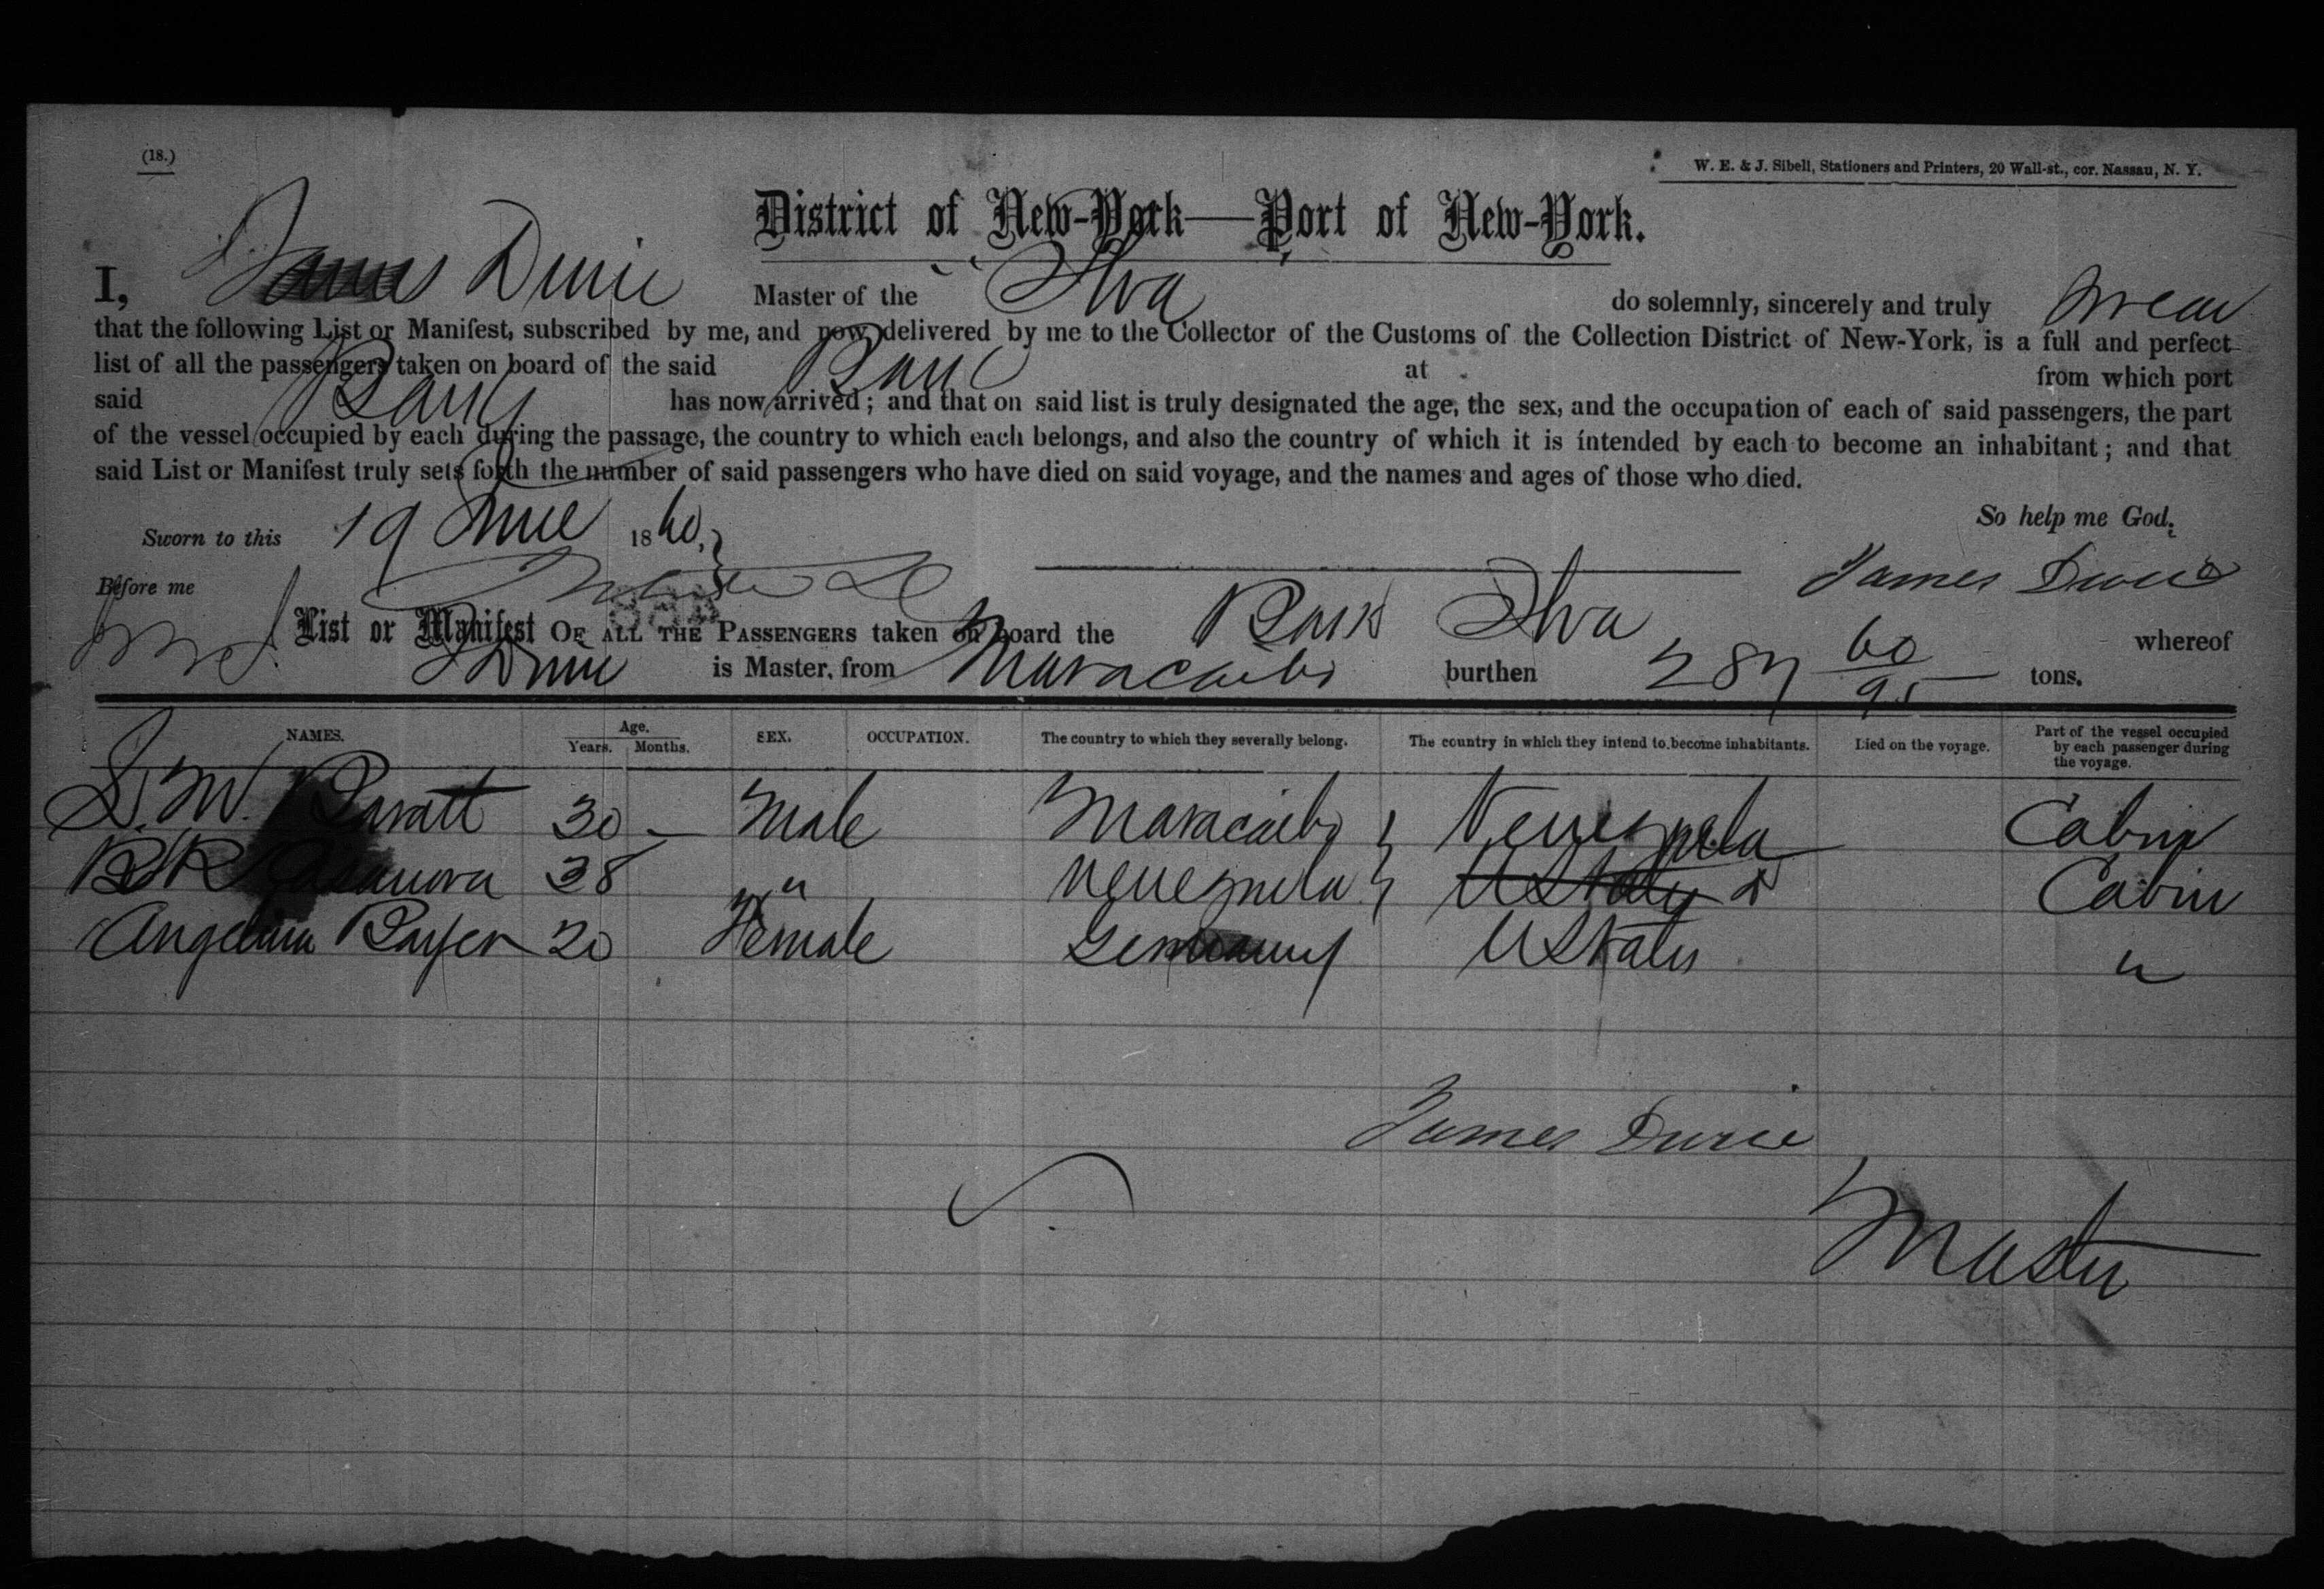 (18.)
W. E. & J. Sibell, Stationers and Printers, 20 Wall-st., cor. Nassau, N. Y.
District of New-York—Port of New-York.
I, James Durie Master of the Alva do solemnly, sincerely and truly swear
that the following List or Manifest, subscribed by me, and now delivered by me to the Collector of the Customs of the Collection District of New-York, is a full and perfect
list of all the passengers taken on board of the said Bark at from which port
said Bark has now arrived; and that on said list is truly designated the age, the sex, and the occupation of each of said passengers, the part
of the vessel occupied by each during the passage, the country to which each belongs, and also the country of which it is intended by each to become an inhabitant; and that
said List or Manifest truly sets forth the number of said passengers who have died on said voyage, and the names and ages of those who died.
So help me God.
Sworn to this 19 June 1860,
Before me James Durie
List or Manifest OF ALL THE PASSENGERS taken on board the Bark Alva whereof
J Durie is Master, from Maracaibo burthen 287 60/95 tons.
NAMES. Age. Years. Months. SEX. OCCUPATION. The country to which they severally belong. The country in which they intend to become inhabitants. Died on the voyage. Part of the vessel occupied by each passenger during the voyage.
S. M. Baratt 30 — Male Maracaibo } Venezuela Cabin
B R Casanova 38 " Venezuela } U States Cabin
Angelina Payer 20 Female Germany U States "
James Durie
Master